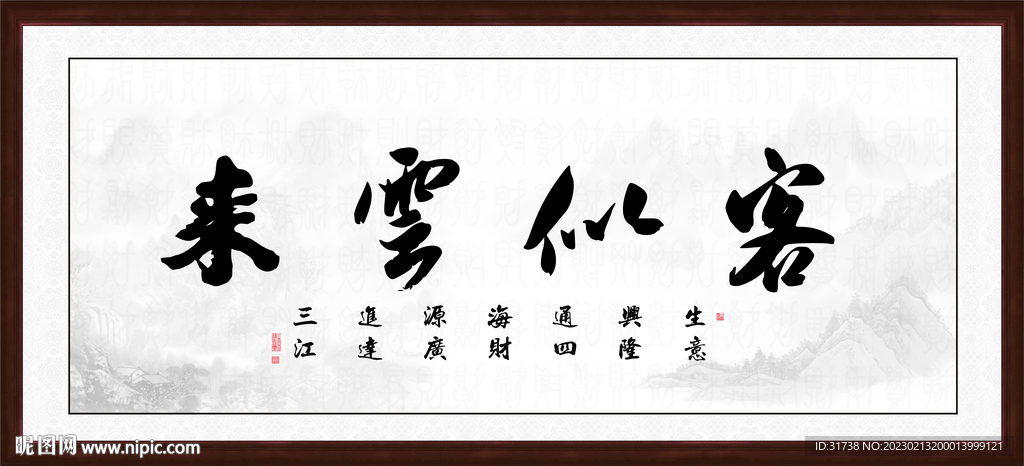 客似雲来
生意
興隆
通四
海財
源廣
進達
三江
昵图网 www.nipic.com
ID:31738 NO:20230213200013999121